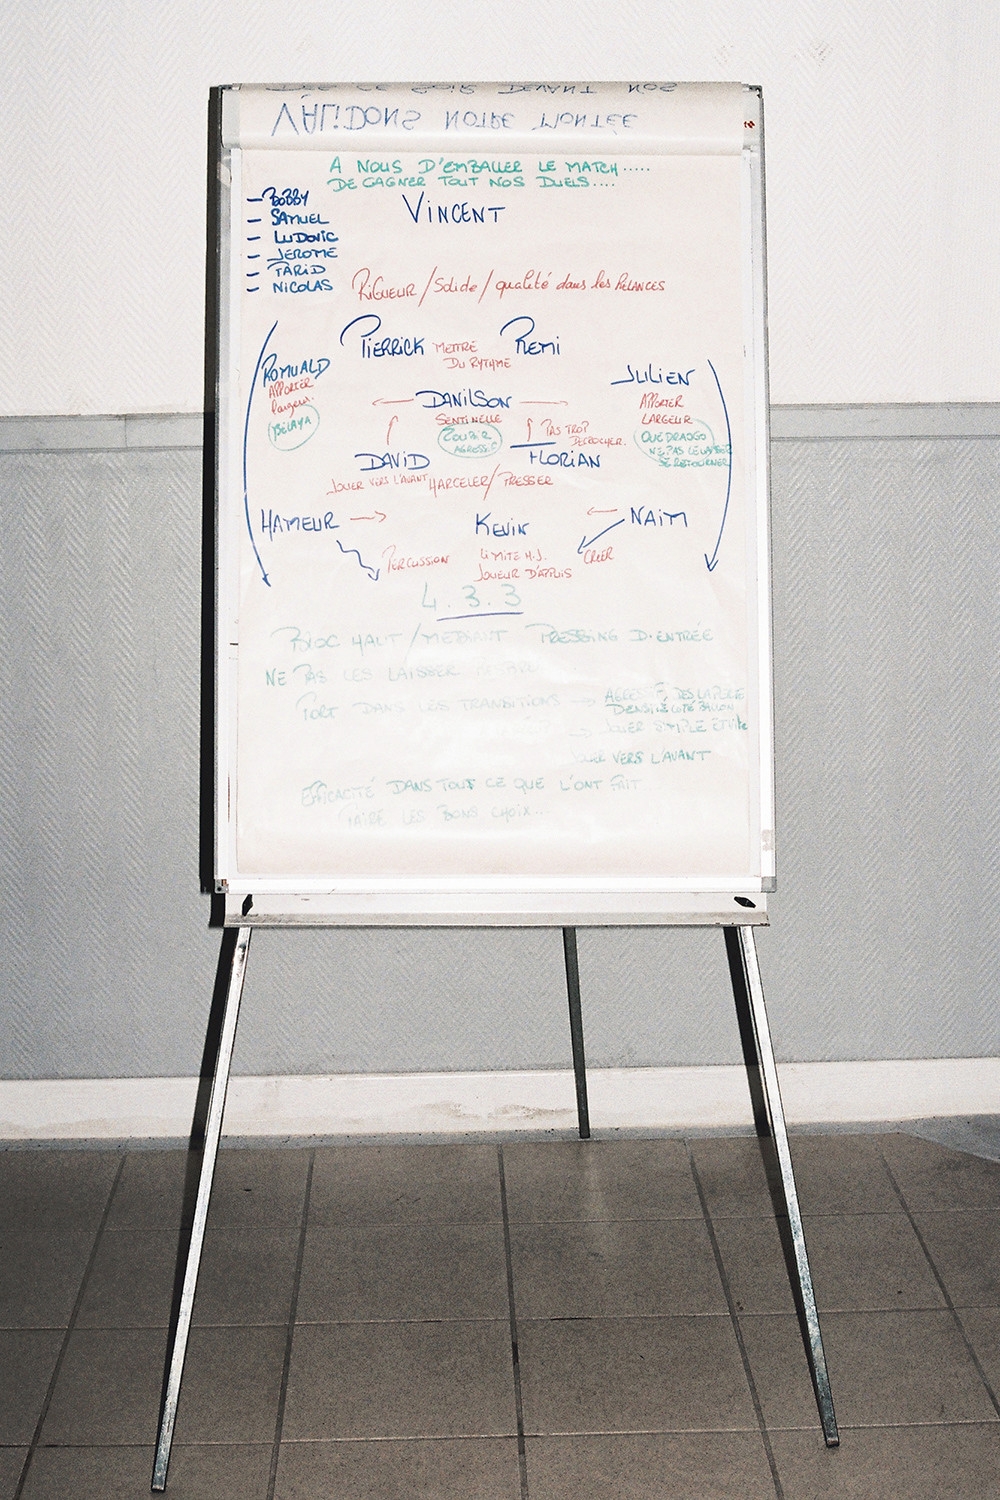 DÈS CE SOIR DEVANT NOS
VALIDONS NOTRE MONTÉE
A NOUS D'EMBALLER LE MATCH.....
DE GAGNER TOUT NOS DUELS....
- BOBBY
- SAMUEL
- LUDOVIC
- JEROME
- TARID
- NICOLAS
VINCENT
RIGUEUR / Solide / qualité dans les RELANCES
PIERRICK
METTRE
DU RYTHME
REMI
ROMUALD
APPORTER
largeur.
BELAYA
JULIEN
APPORTER
LARGEUR
OUEDRAOGO
NE PAS LE LAISSER
SE RETOURNER
DANILSON
SENTINELLE
ZOUBIR
AGRESSIF
PAS TROP
DECROCHER.
DAVID
FLORIAN
JOUER VERS L'AVANT
HARCELER / PRESSER
HAMEUR
KEVIN
NAIM
PERCUSSION
LIMITE H.J.
JOUEUR D'APPUIS
CREER
4.3.3
BLOC HAUT / MEDIANT PRESSING D'ENTRÉE
NE PAS LES LAISSER
FORT DANS LES TRANSITIONS →
AGRESSIF DES LA PERTE
DENSITÉ COTÉ BALLON
→ JOUER SIMPLE ET VITE
JOUER VERS L'AVANT
EFFICACITÉ DANS TOUT CE QUE L'ONT FAIT
FAIRE LES BONS CHOIX...